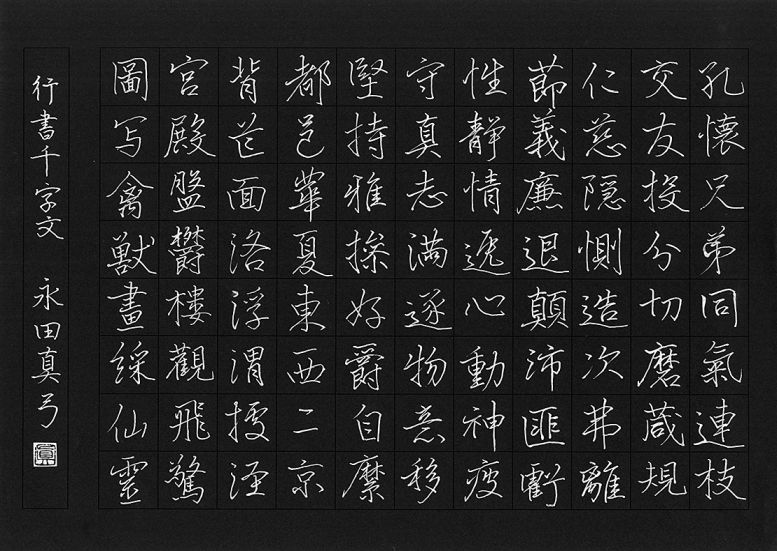 孔懷兄弟同氣連枝
交友投分切磨箴規
仁慈隠惻造次弗離
節義廉退顛沛匪虧
性靜情逸心動神疲
守真志満逐物意移
堅持雅操好爵自縻
都邑華夏東西二京
背芒面洛浮渭據涇
宮殿盤鬱樓觀飛驚
圖写禽獣畫綵仙靈
行書千字文 永田真弓